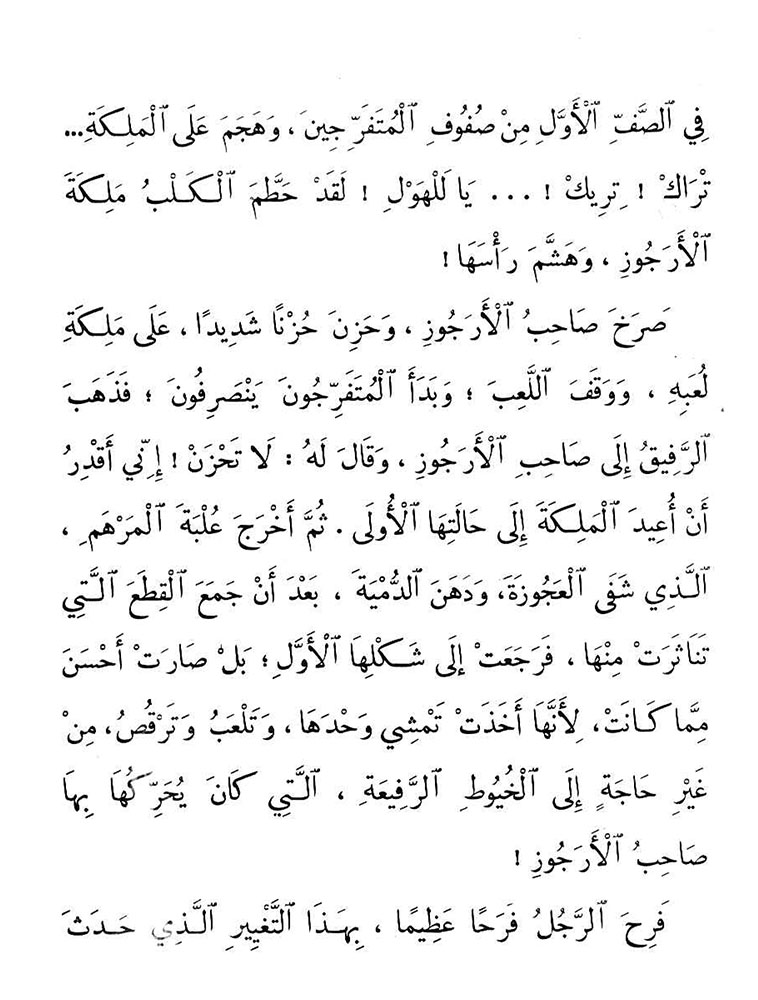 فِي ٱلصَّفِّ ٱلْأَوَّلِ مِنْ صُفُوفِ ٱلْمُتَفَرِّجِينَ ، وَهَجَمَ عَلَى ٱلْمَلِكَةِ ...
تْرَاكْ ! تِرِيكْ ! ... يَا لَلْهَوْلِ ! لَقَدْ حَطَّمَ ٱلْكَلْبُ مَلِكَةَ
ٱلْأَرَجُوزِ ، وَهَشَّمَ رَأْسَهَا !
صَرَخَ صَاحِبُ ٱلْأَرَجُوزِ ، وَحَزِنَ حُزْنًا شَدِيدًا ، عَلَى مَلِكَةِ
لُعَبِهِ ، وَوَقَفَ ٱللَّعِبَ ؛ وَبَدَأَ ٱلْمُتَفَرِّجُونَ يَنْصَرِفُونَ ؛ فَذَهَبَ
ٱلرَّفِيقُ إِلَى صَاحِبِ ٱلْأَرَجُوزِ ، وَقَالَ لَهُ : لَا تَحْزَنْ ! إِنِّي أَقْدِرُ
أَنْ أُعِيدَ ٱلْمَلِكَةَ إِلَى حَالَتِهَا ٱلْأُولَى . ثُمَّ أَخْرَجَ عُلْبَةَ ٱلْمَرْهَمِ ،
ٱلَّذِي شَفَى ٱلْعَجُوزَةَ، وَدَهَنَ ٱلدُّمْيَةَ ، بَعْدَ أَنْ جَمَعَ ٱلْقِطَعَ ٱلَّتِي
تَنَاثَرَتْ مِنْهَا ، فَرَجَعَتْ إِلَى شَكْلِهَا ٱلْأَوَّلِ ؛ بَلْ صَارَتْ أَحْسَنَ
مِمَّا كَانَتْ، لِأَنَّهَا أَخَذَتْ تَمْشِي وَحْدَهَا ، وَتَلْعَبُ وَتَرْقُصُ، مِنْ
غَيْرِ حَاجَةٍ إِلَى ٱلْخُيُوطِ ٱلرَّفِيعَةِ ، ٱلَّتِي كَانَ يُحَرِّكُهَا بِهَا
صَاحِبُ ٱلْأَرَجُوزِ !
فَرِحَ ٱلرَّجُلُ فَرَحًا عَظِيمًا ، بِهَذَا ٱلتَّغْيِيرِ ٱلَّذِي حَدَثَ